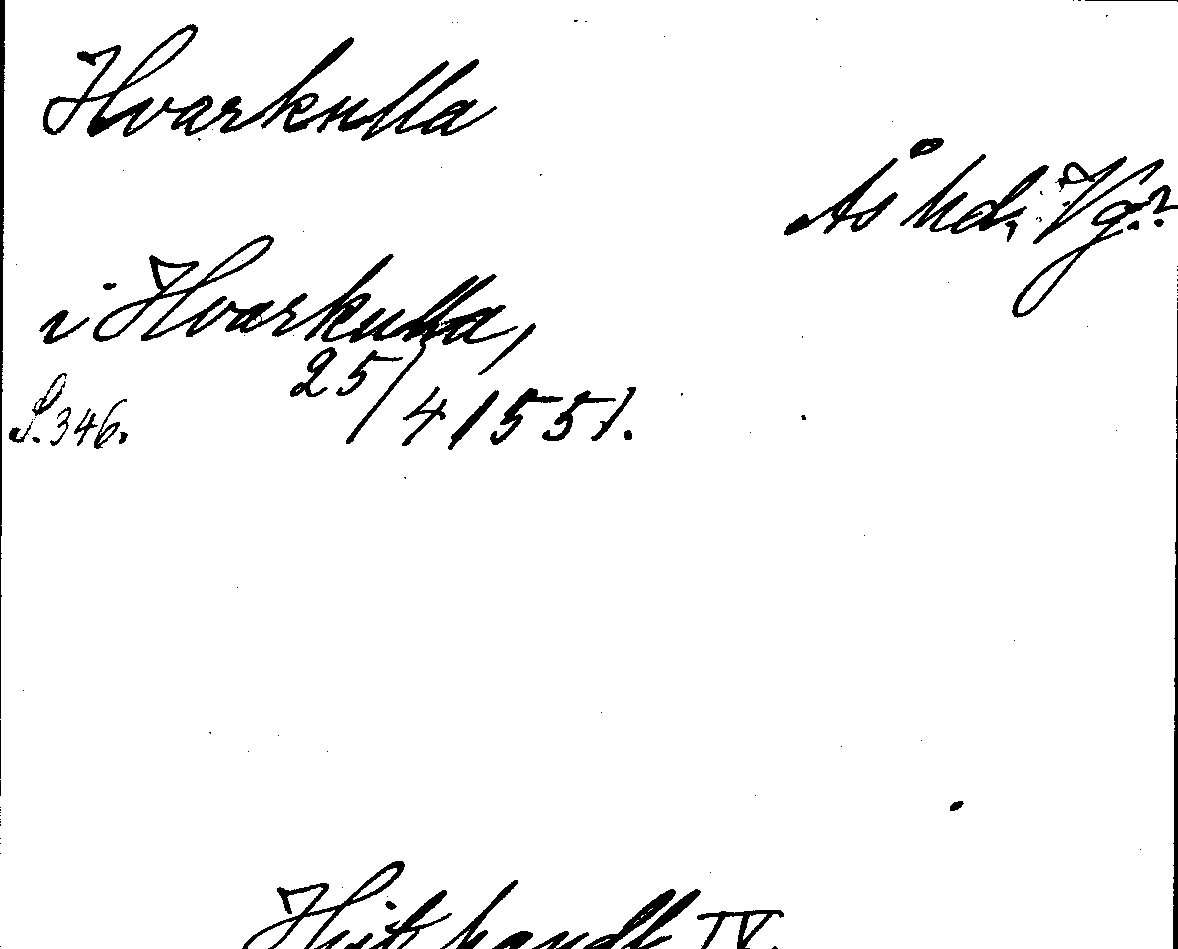 Hvarkulla
Ås hd, Vg.?
i Hvarkulla,
25/4 1551.
S. 346.
Hist. handl. IV.